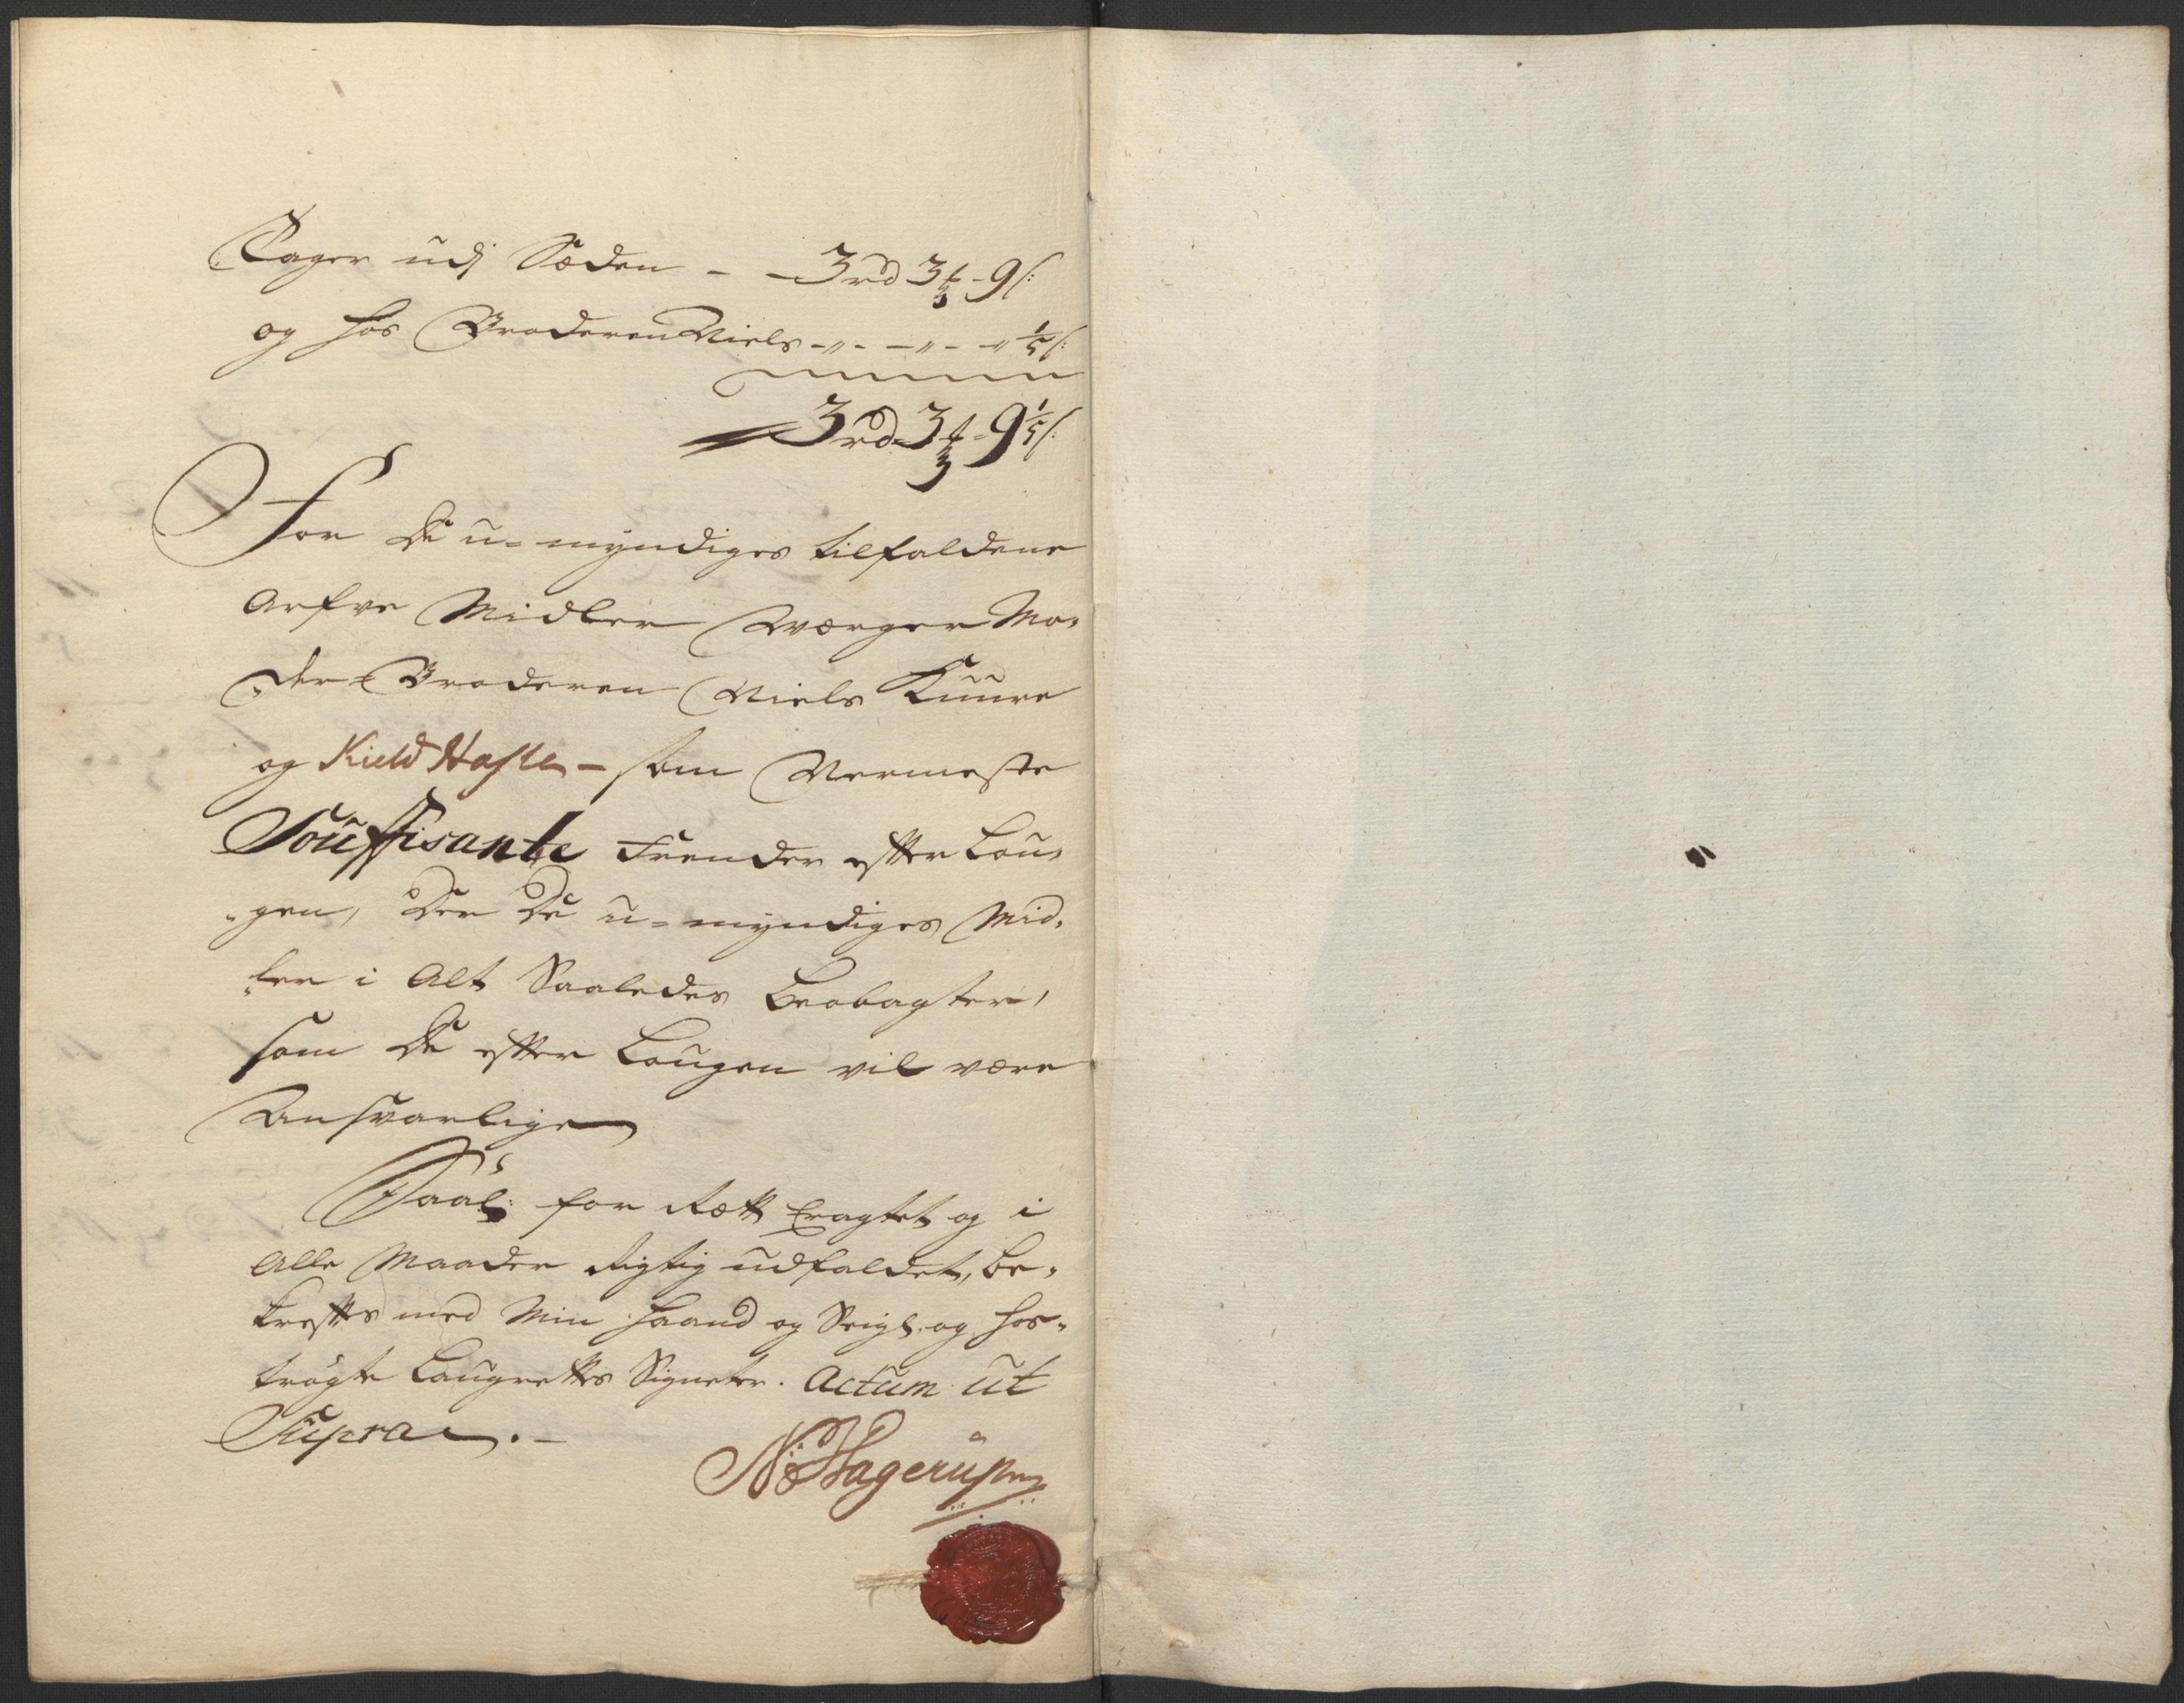 Tager udj Sæden - - 3 rd 3 ꝑ - 9 s:
og hos Broderen Niels - „ - - „ - - „ 1/5 s:
3 rd - 3 ꝑ - 9 1/5 s:
For de u-myndiges tilfaldene
Arfve Midler Værger Mo-
der-Broderen Niels Kuure
og Kield Hasle - som Nermeste
Souffisante Frender efter Lou-
gen, der de u-myndiges Mid-
ler i Alt Saaledes Beobagter,
som de efter Lougen vil være
Ansvarlige
Saal: for Rætt Eragtet og i
Alle Maader Rigtig udfaldet, be-
kreftes med Min Haand og Seigl. og hos-
trögte Laugrettes Signeter. Actum ut
Supra. -
Hagerup